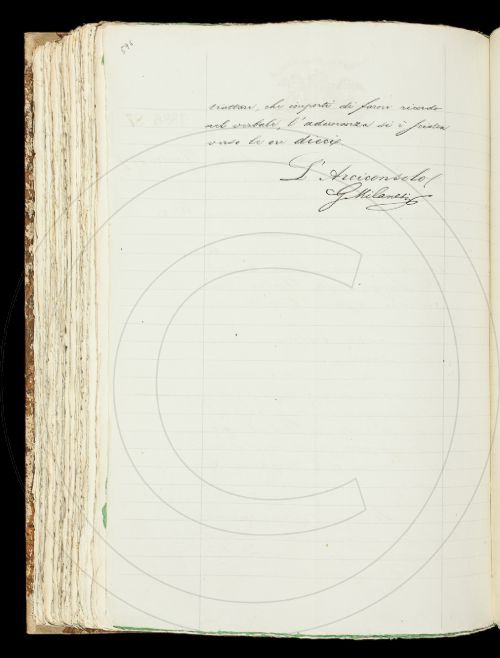 596
trattare, che importi di farsi ricordo
nel verbale, l'adunanza si è sciolta
verso le ore dieci.
L'Arciconsolo
G Milanesi